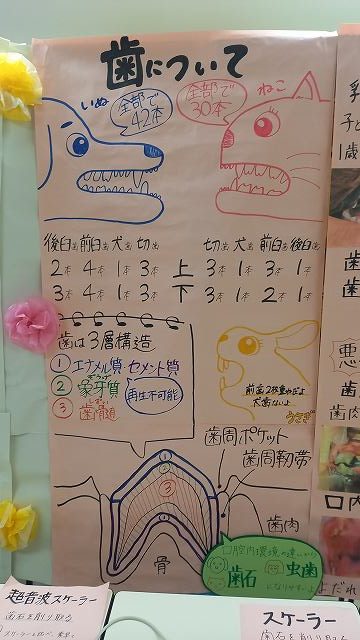 歯について
いぬ
全部で
42本
ねこ
全部で
30本
後臼歯 前臼歯 犬歯 切歯
切歯 犬歯 前臼歯 後臼歯
2本 4本 1本 3本 上 3本 1本 3本 1本
3本 4本 1本 3本 下 3本 1本 2本 1本
歯は3層構造
① エナメル質・セメント質
② 象牙質
③ 歯髄
再生不可能
前歯2枚重ねだよ
犬歯ないよ
うさぎ
歯周ポケット
歯周靭帯
①
②
③
歯肉
骨
口腔内環境の違いから
歯石
虫歯
になりやすい
よだれ
超音波スケーラー
歯石を削り取る
スケーラー
歯石を削り取る
1歳
歯
歯
悪
歯
歯肉
口の